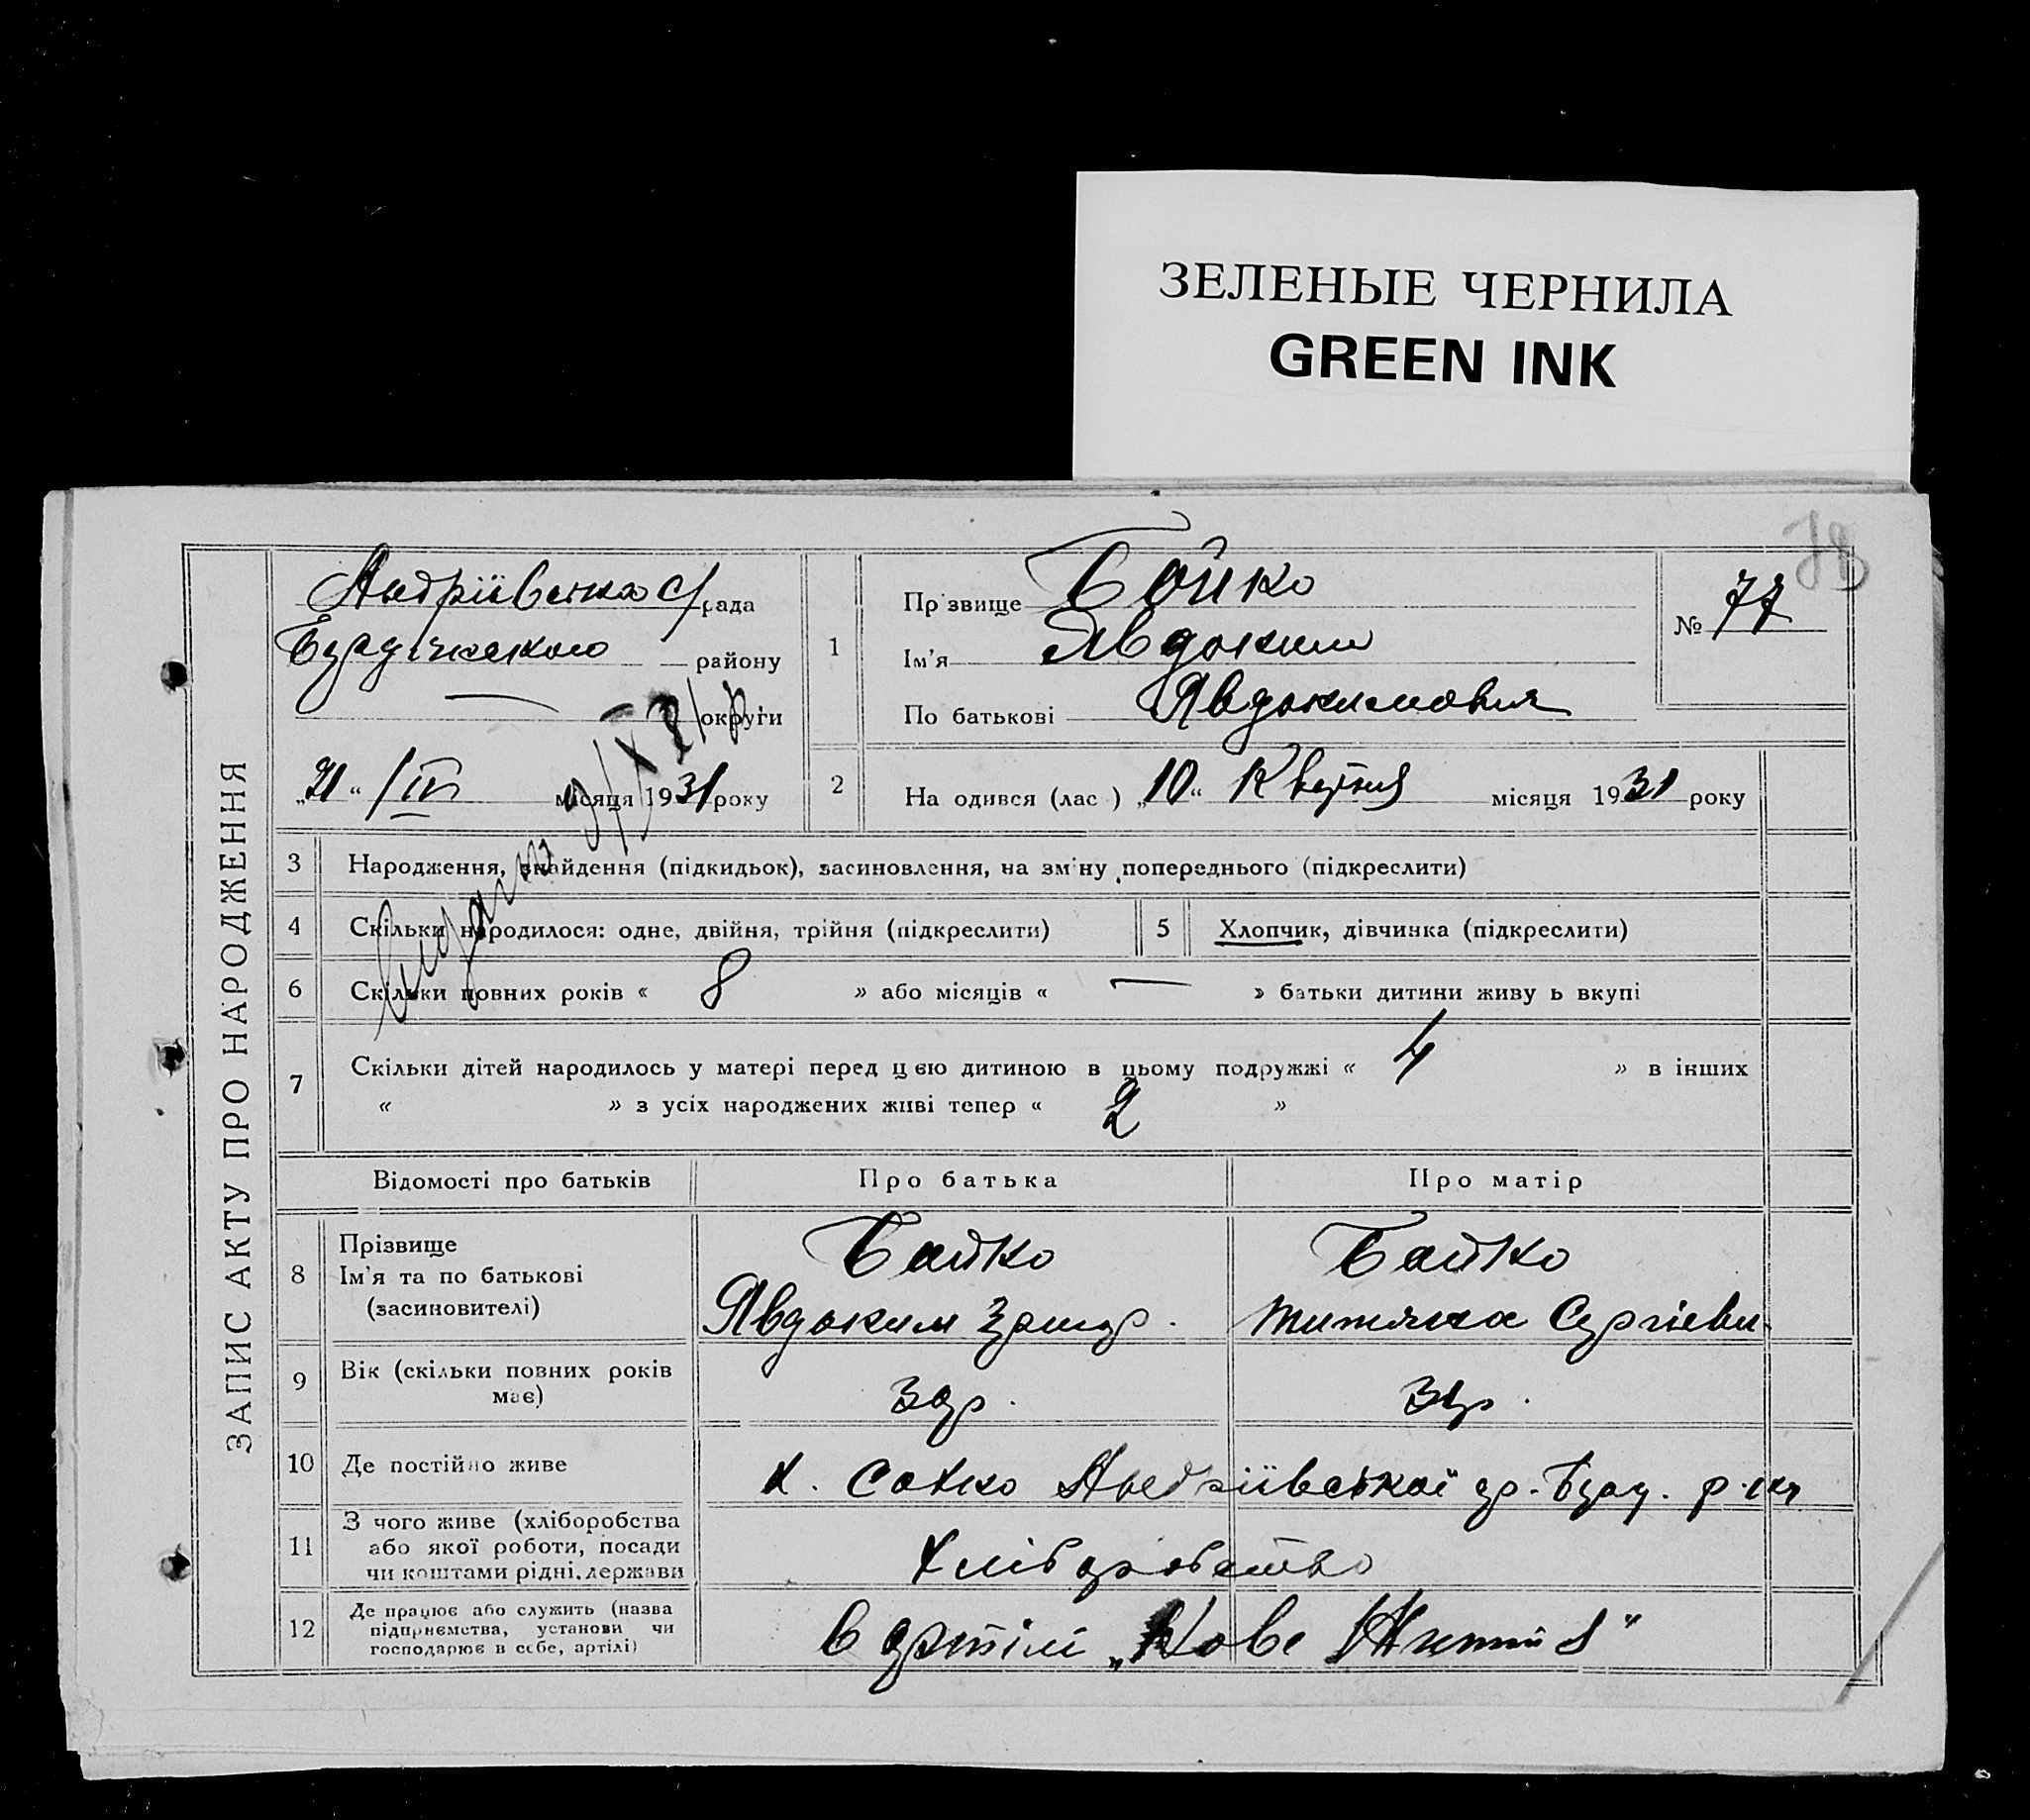 ЗЕЛЕНЫЕ ЧЕРНИЛА
GREEN INK
ЗАПИС АКТУ ПРО НАРОДЖЕННЯ
Андріївська с/рада
району
округи
„21“ /IV місяця 1931 року
1
Пр звище Бойко
Ім'я Явдоким
По батькові Явдокимович
№ 77
2
На одився (лас ) „10“ Квітня місяця 1931 року
3 Народження, знайдення (підкидьок), засиновлення, на зміну попереднього (підкреслити)
4 Скільки народилося: одне, двійня, трійня (підкреслити)
5 Хлопчик, дівчинка (підкреслити)
6 Скільки повних років « 8 » або місяців « — » батьки дитини живу ь вкупі
7 Скільки дітей народилось у матері перед цєю дитиною в цьому подружжі « 4 » в інших
« » з усіх народжених живі тепер « 2 »
Відомості про батьків Про батька Про матір
8 Прізвище
Ім'я та по батькові
(засиновителі)
Бойко Бойко
Явдоким
9 Вік (скільки повних років
має)
10 Де постійно живе
Андріївської
11 З чого живе (хліборобства
або якої роботи, посади
чи коштами рідні, держави
Хліборобство
12 Де працює або служить (назва
підприємства, установи чи
господарює в себе, артілі)
в артілі „Нове Життя“